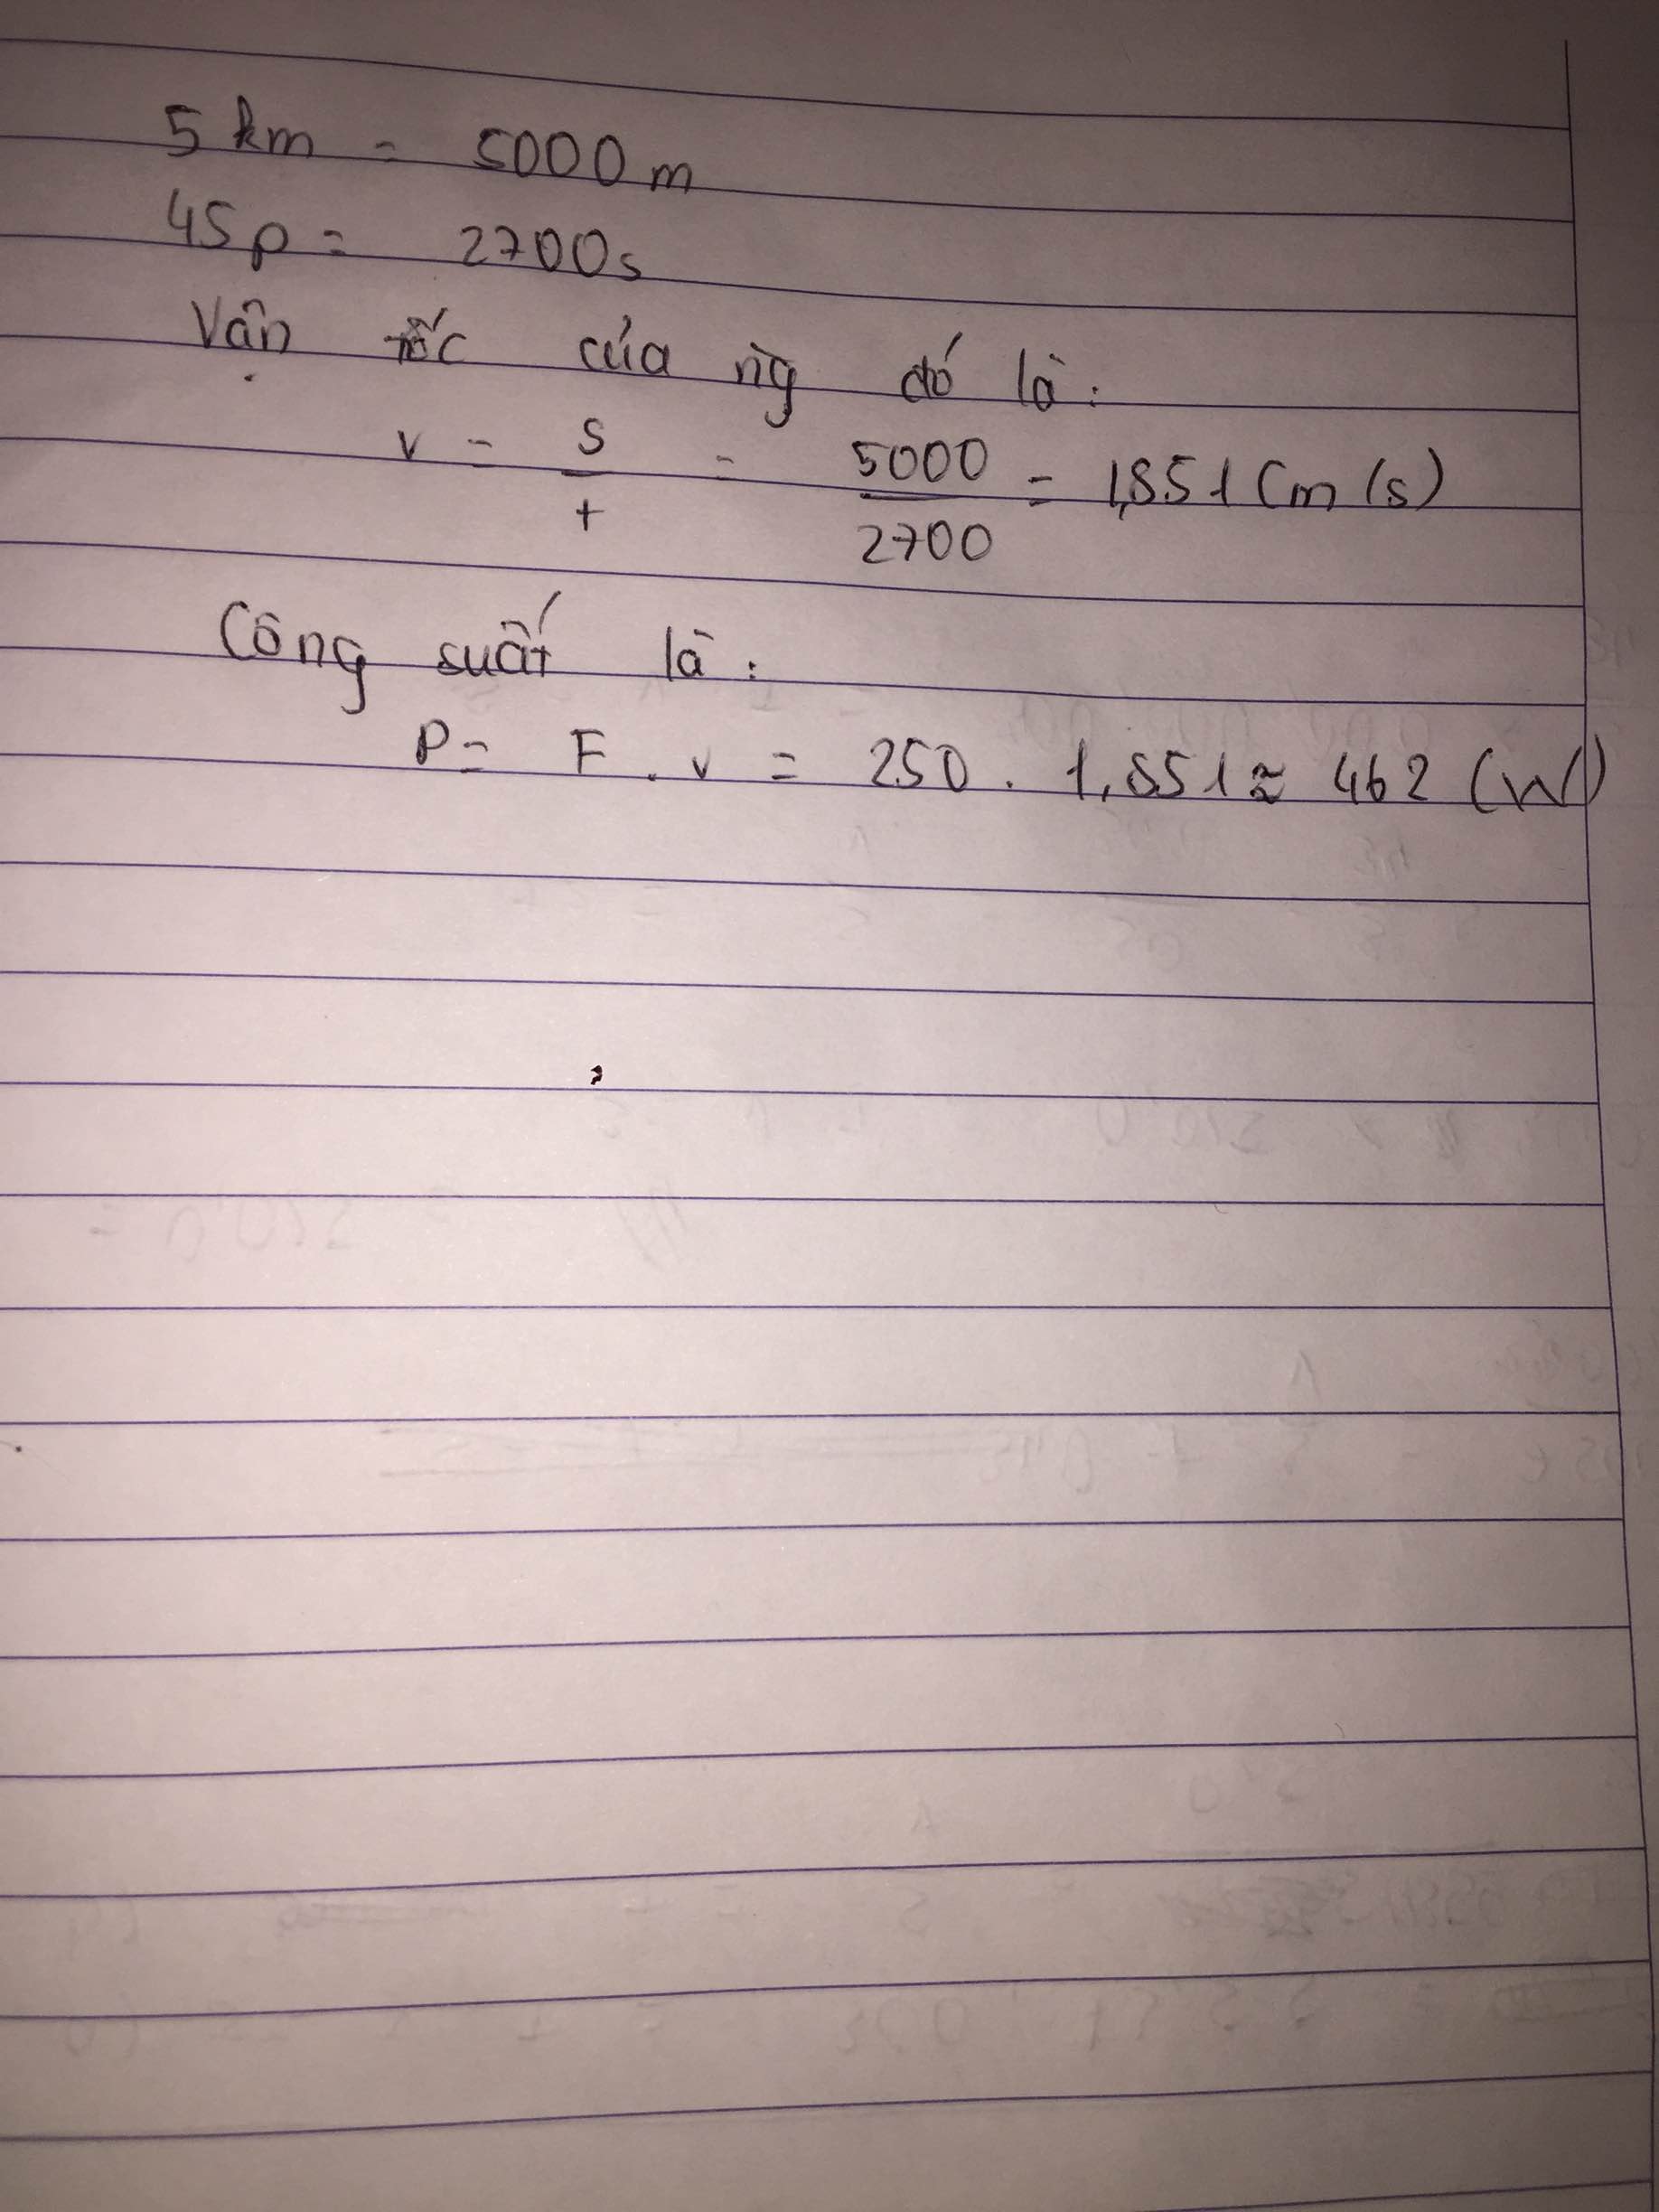 5 km = 5000 m
45p = 2700s
Vận tốc của ng đó là:
v = s/t = 5000/2700 = 1,851 (m/s)
Công suất là:
P = F . v = 250 . 1,851 ≈ 462 (W)